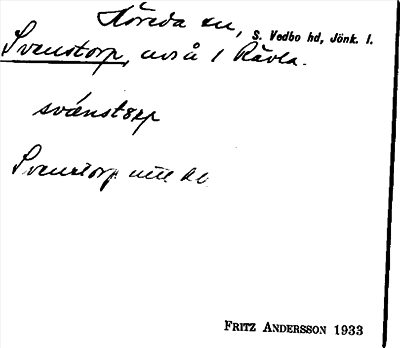 Höreda sn, S. Vedbo hd, Jönk. l.
Svenstorp, 1 Rävla.
svänstorp
Svenstorp
FRITZ ANDERSSON 1933